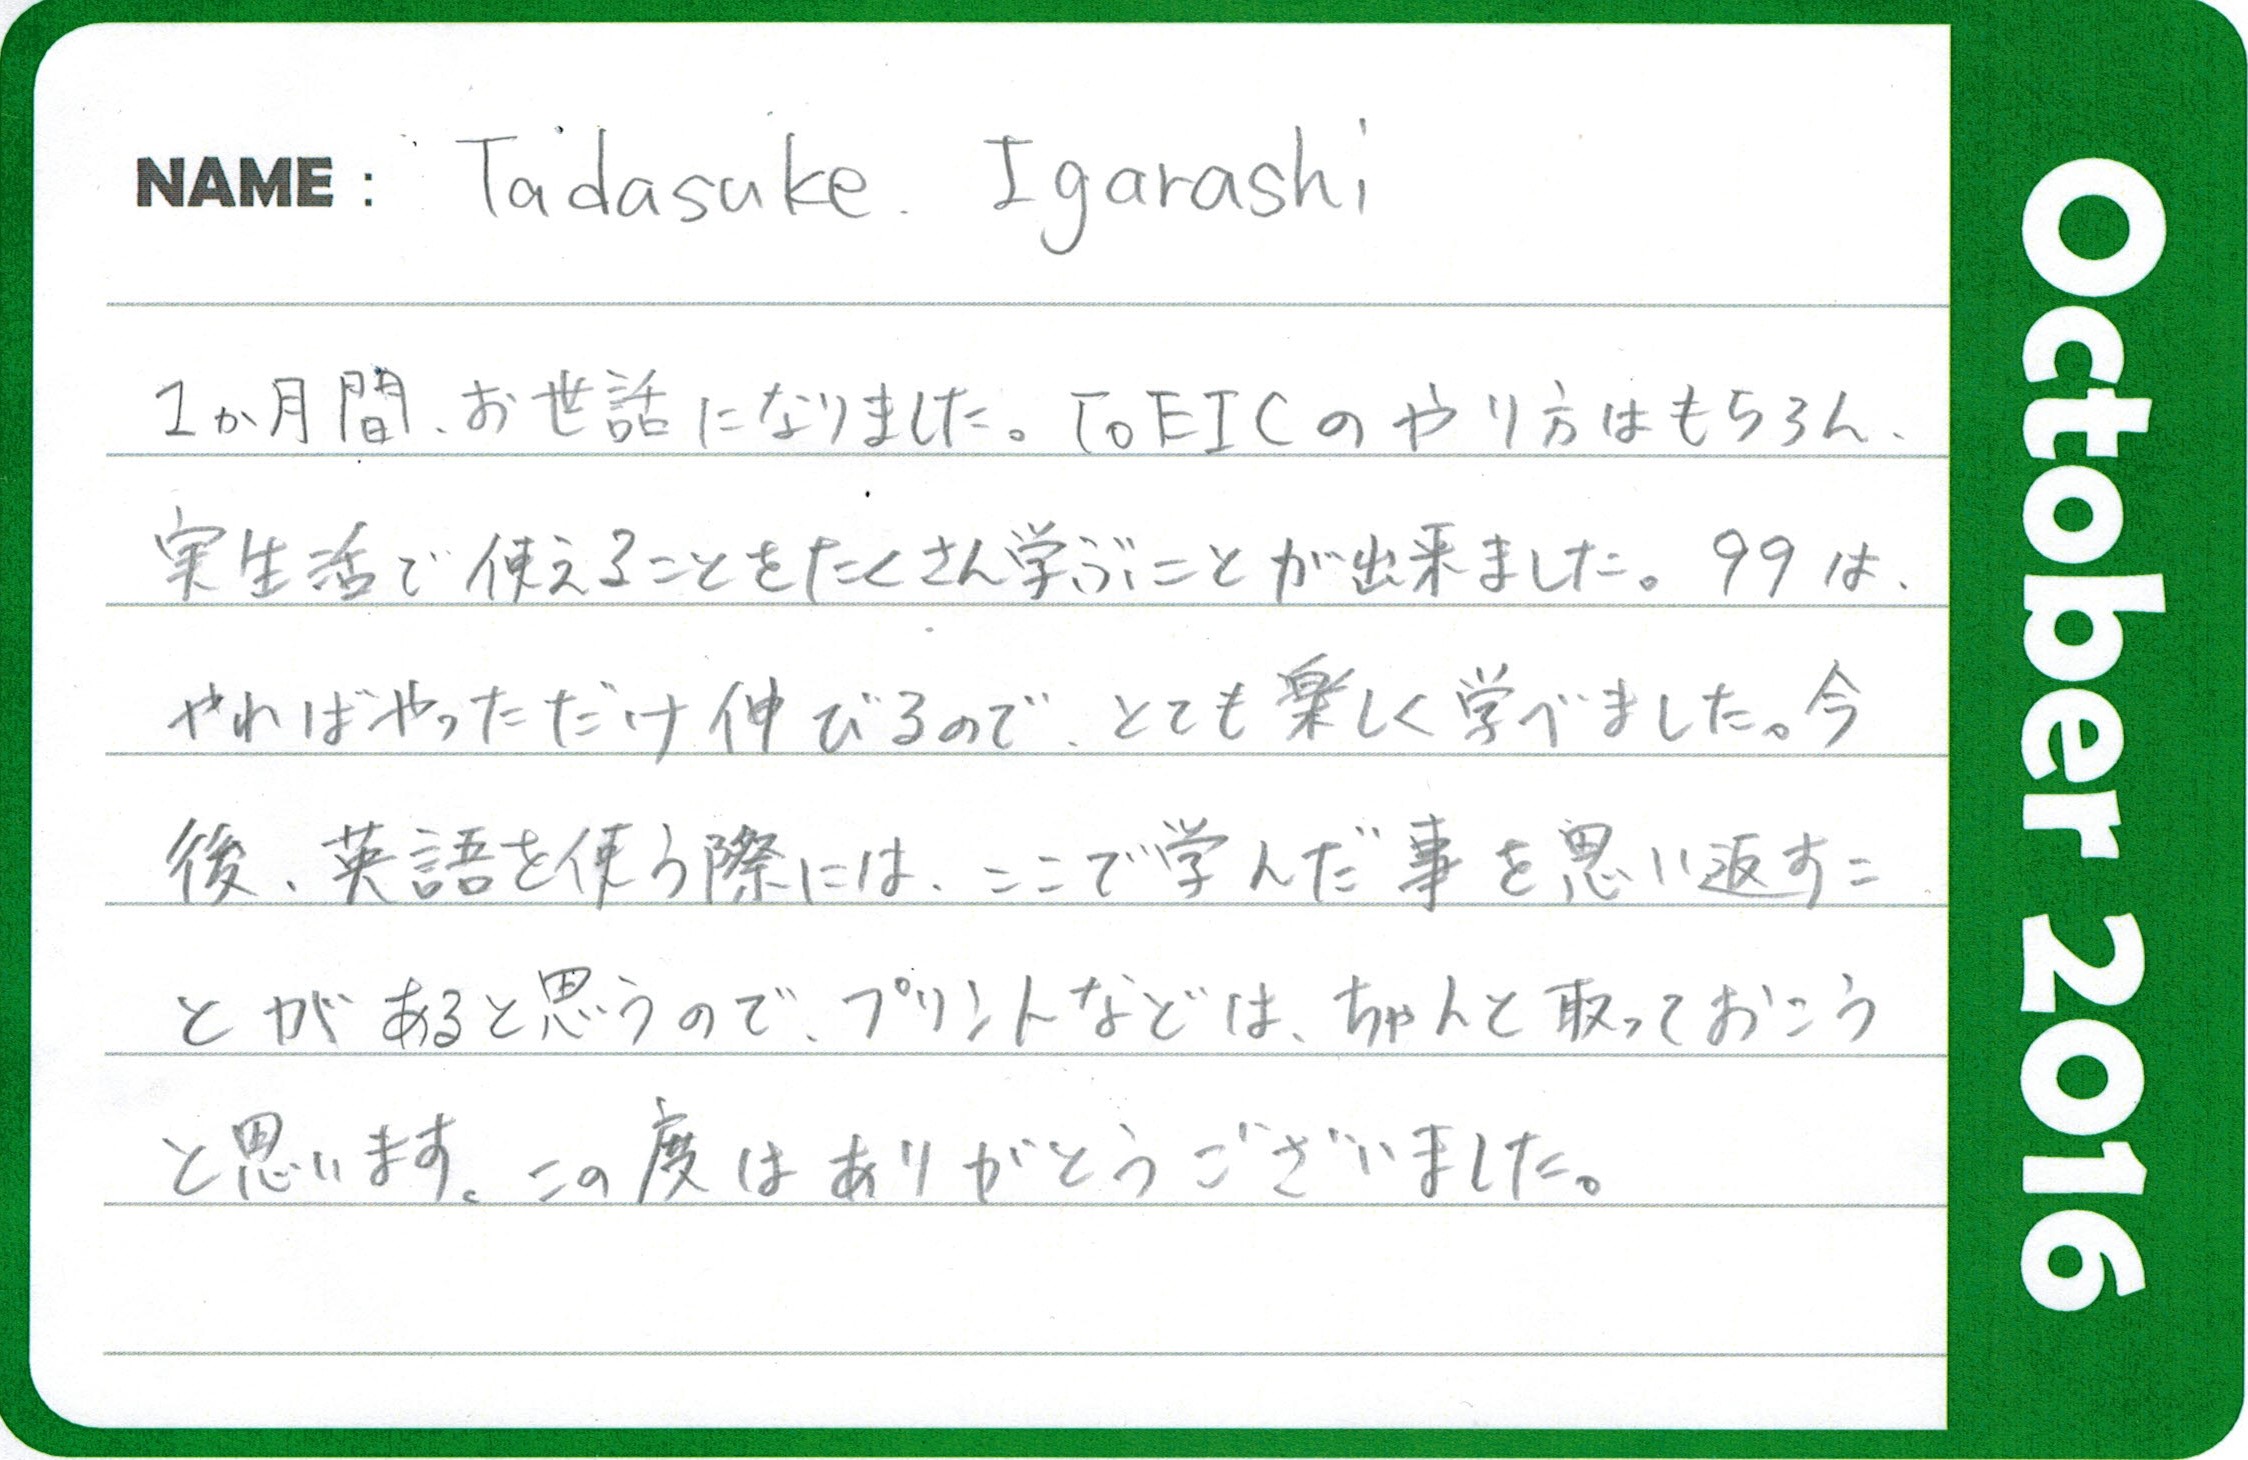 NAME : Tadasuke. Igarashi
1か月間、お世話になりました。ToEICのやり方はもちろん、
実生活で使えることをたくさん学ぶことが出来ました。99は、
やればやっただけ伸びるので、とても楽しく学べました。今
後、英語を使う際には、ここで学んだ事を思い返すこ
とがあると思うので、プリントなどは、ちゃんと取っておこう
と思います。この度はありがとうございました。
October 2016